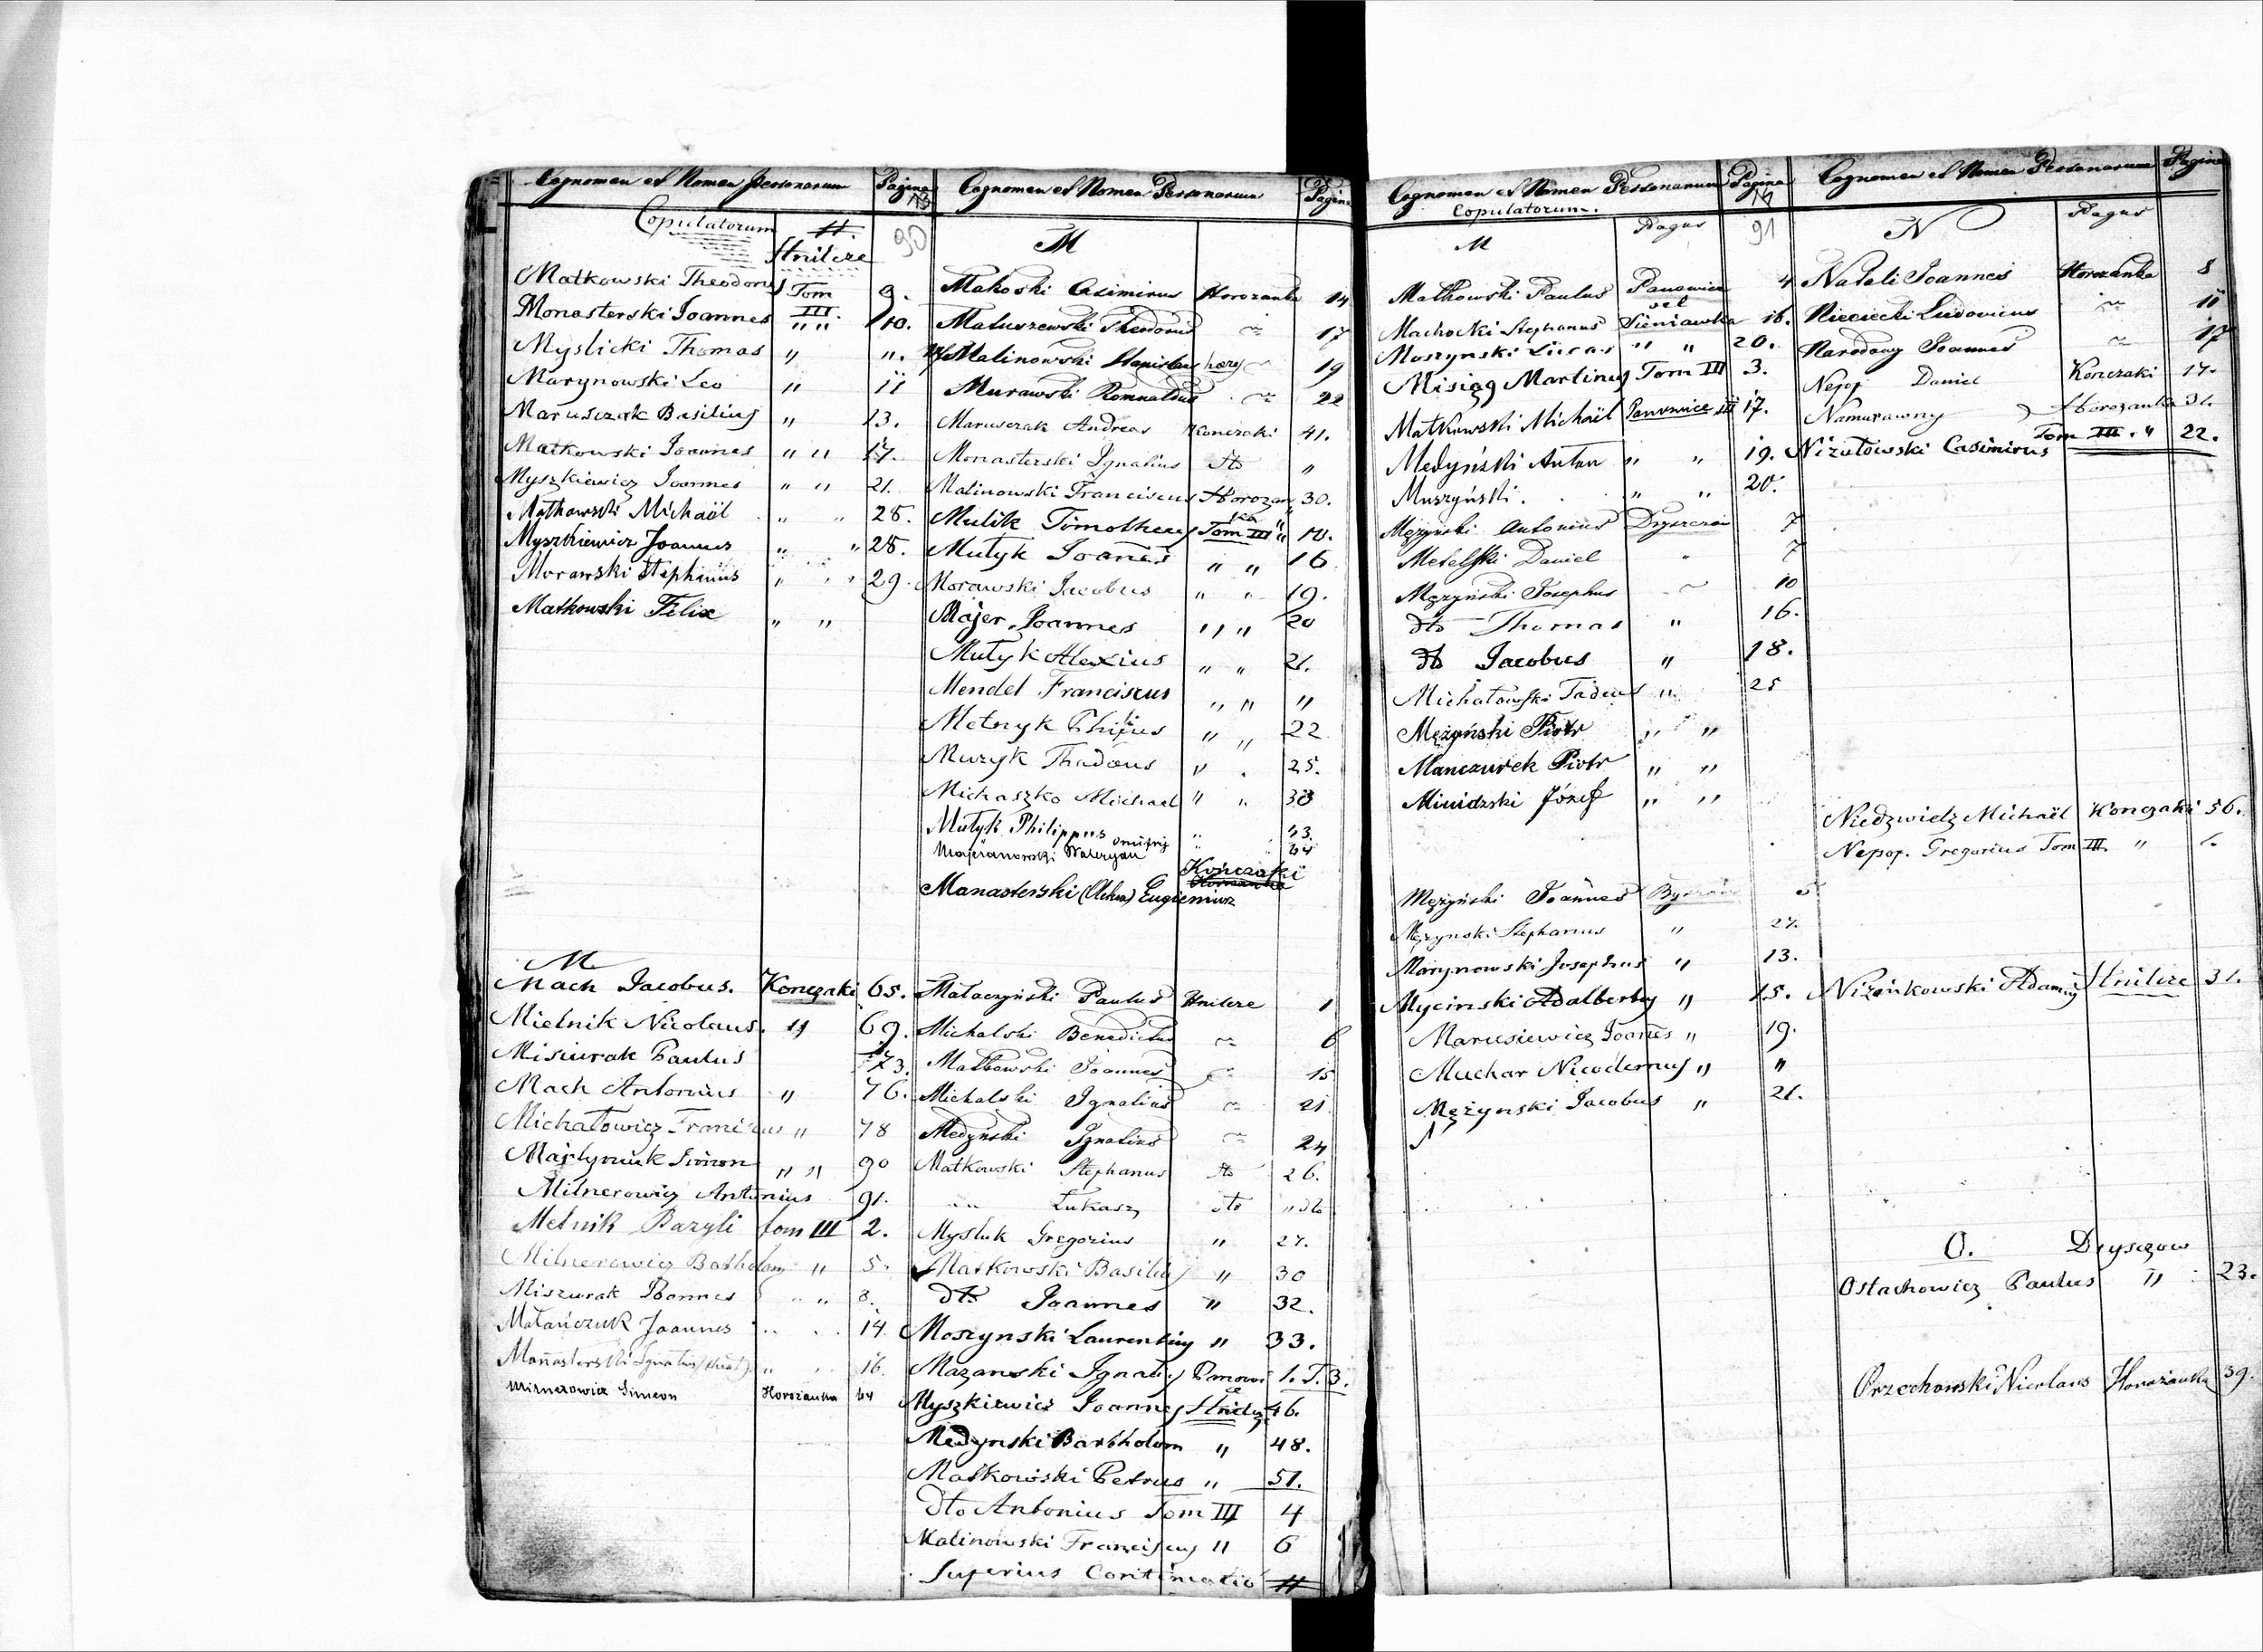 Cognomen et Nomen Personarum Pagina 13
Copulatorum # 90
Hnilcze
Matkowski Theodorus Tom III. 9.
Monasterski Joannes " " 10.
Myslicki Thomas " ".
Marynowski Leo " 11
Maruszczak Basilius " 13.
Matkowski Joannes " " 17.
Myszkiewicz Joannes " " 21.
Mathowski Michaël " " 28.
Myszkiewicz Joannes " " 28.
Morawski Stephanus " " 29.
Matkowski Felix " "
M
Mach Jacobus. Konczaki 65.
Mielnik Nicolaus. " 69.
Misiurak Paulus 73.
Mach Antonius " 76.
Michałowicz Franciscus " 78
Martyniuk Simon " " 90
Milnerowicz Antonius 91.
Melnik Bazyli tom III 2.
Milnerowicz Batholom " 5.
Miszurak Joannes " " 8.
Matańczuk Joannes " " 14
Monasterski Ignatius " " 16
Milnerowicz Simeon Horożanka 64
Cognomen et Nomen Personarum Pagina
M
Makoski Casimirus Horozanka 14
Matuszewski Theodorus ~ 17
Malinowski Stanislaus ~ 19
Murawski Romualdus ~ 22
Marusczak Andreas Konczaki 41.
Monasterski Ignatius dto "
Malinowski Franciscus Horozanka 30.
Mulik Timotheus Tom III " 10.
Mutyk Joanes " " 16
Morawski Jacobus " " 19.
Majer Joannes " " 20
Mutyk Alexius " " 21.
Mendel Franciscus " " "
Metnyk Philipus " " 22
Muzyk Thadeus " " 25.
Michaszko Michael " " 38
Mutyk Philippus Dmitrij " 43.
Majeranowski Waleryan " " 64
Manasterski (Uchna) Eugieniusz Kończaki
Małaczyński Paulus Hnilcze 1
Michalski Benedictus ~ 6
Matkowski Joannes ~ 15
Michalski Ignatius ~ 21
Medyński Ignatius ~ 24
Matkowski Stephanus dto 26.
" " Łukasz dto " dto
Mysluk Gregorius " 27.
Matkowski Basilius " 30
dto Joannes " 32.
Moszynski Laurentius " 33.
Mazanowski Ignatius Panowice 1. T. 3.
Myszkiewicz Joannes Hnilcze 46.
Medynski Barthołom " 48.
Matkowski Petrus " 51.
dto Antonius Tom III 4
Malinowski Franciscus " 6
Superius Continuatio #
Cognomen et Nomen Personarum Pagina 14
Copulatorum.
M Pagus 91
Matkowski Paulus Panowice 4
vel
Machocki Stephanus Sieniawka 16.
Moszynski Lucas " " 20.
Misiąg Martinus Tom III 3.
Matkowski Michaël Panowice III 17.
Medyński Anton " " 19.
Muszyński. " " 20.
Mężyński Antonius Dryszczów 7
Metelski Daniel " 7
Mężyński Josephus ~ 10
dto Thomas " 16.
dto Jacobus " 18.
Michałowski Tadeus " 25
Mężyński Piotr " "
Manczurek Piotr " "
Józef " "
Mężyński Joannes 5
Mężynski Stephanus " 27.
Marynowski Josephus " 13.
Mycinski Adalbertus " 15.
Marusiewicz Joanes " 19.
Muchar Nicodemus " "
Mężynski Jacobus " 21.
Cognomen et Nomen Personarum Pagina
N Pagus
Natali Joannes Horozanka 8
Nieciecki Ludovicus ~ 11
Narodowy Joannes ~ 17
Nepop Daniel Konczaki 17.
Namurawny Horozanka 31.
Nizułowski Casimirus Tom III. " 22.
Niedzwiedz Michaël Konczaki 56.
Nepop. Gregorius Tom III. " 1.
Nizinkowski Adamus Hnilcze 31.
O. Dryszczow
Ostachowicz Paulus " 23.
Orzechowski Nicolaus Horożanka 39.